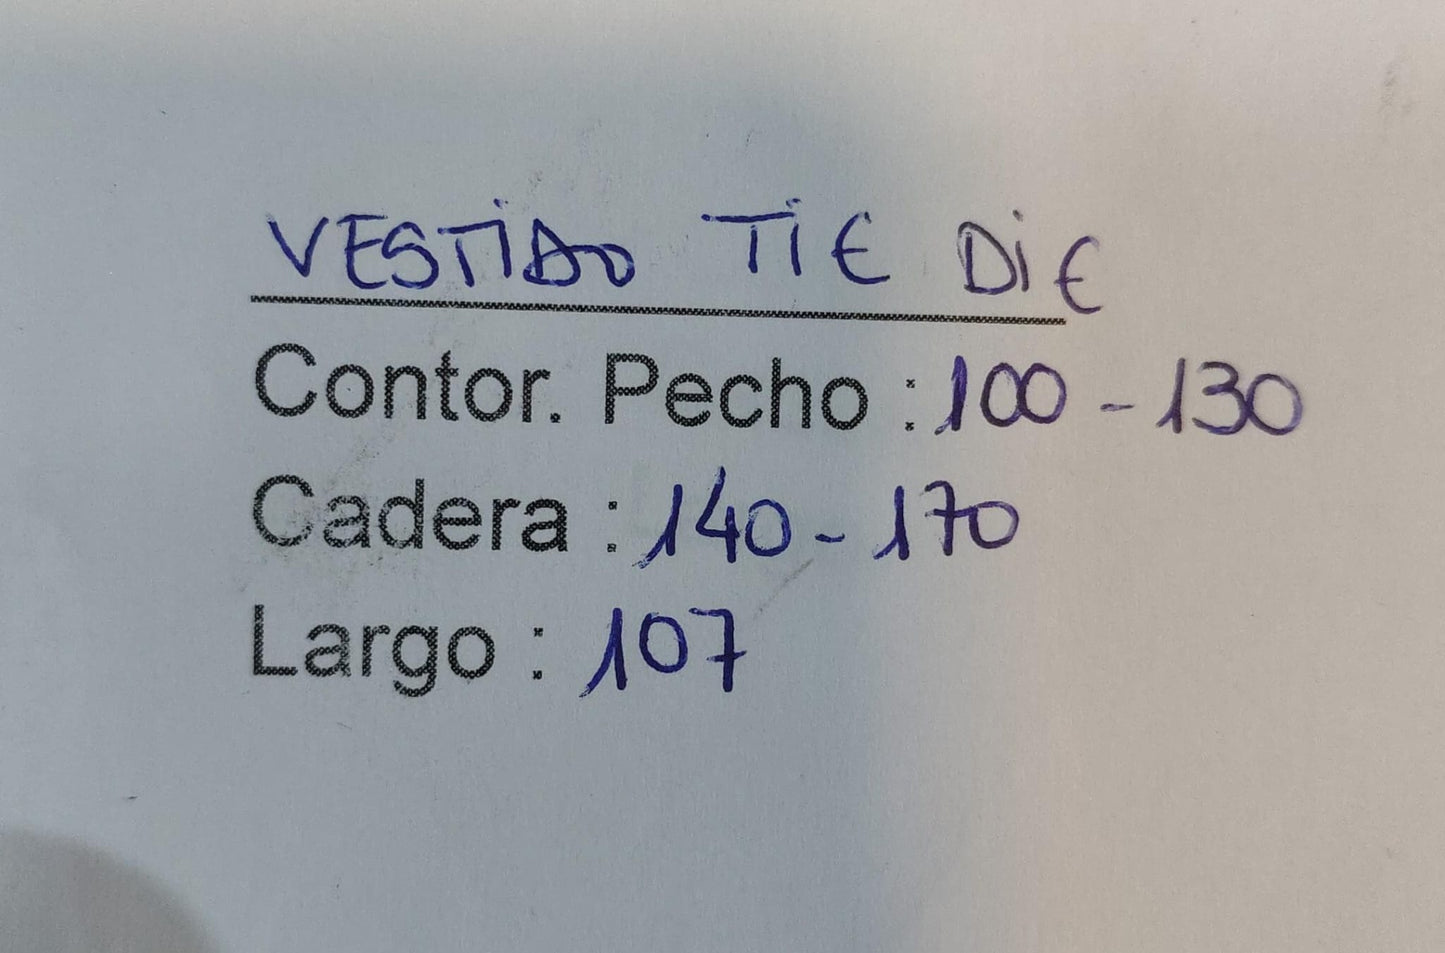 VESTIDO TIE DIE
Contor. Pecho : 100 - 130
Cadera : 140 - 170
Largo : 107